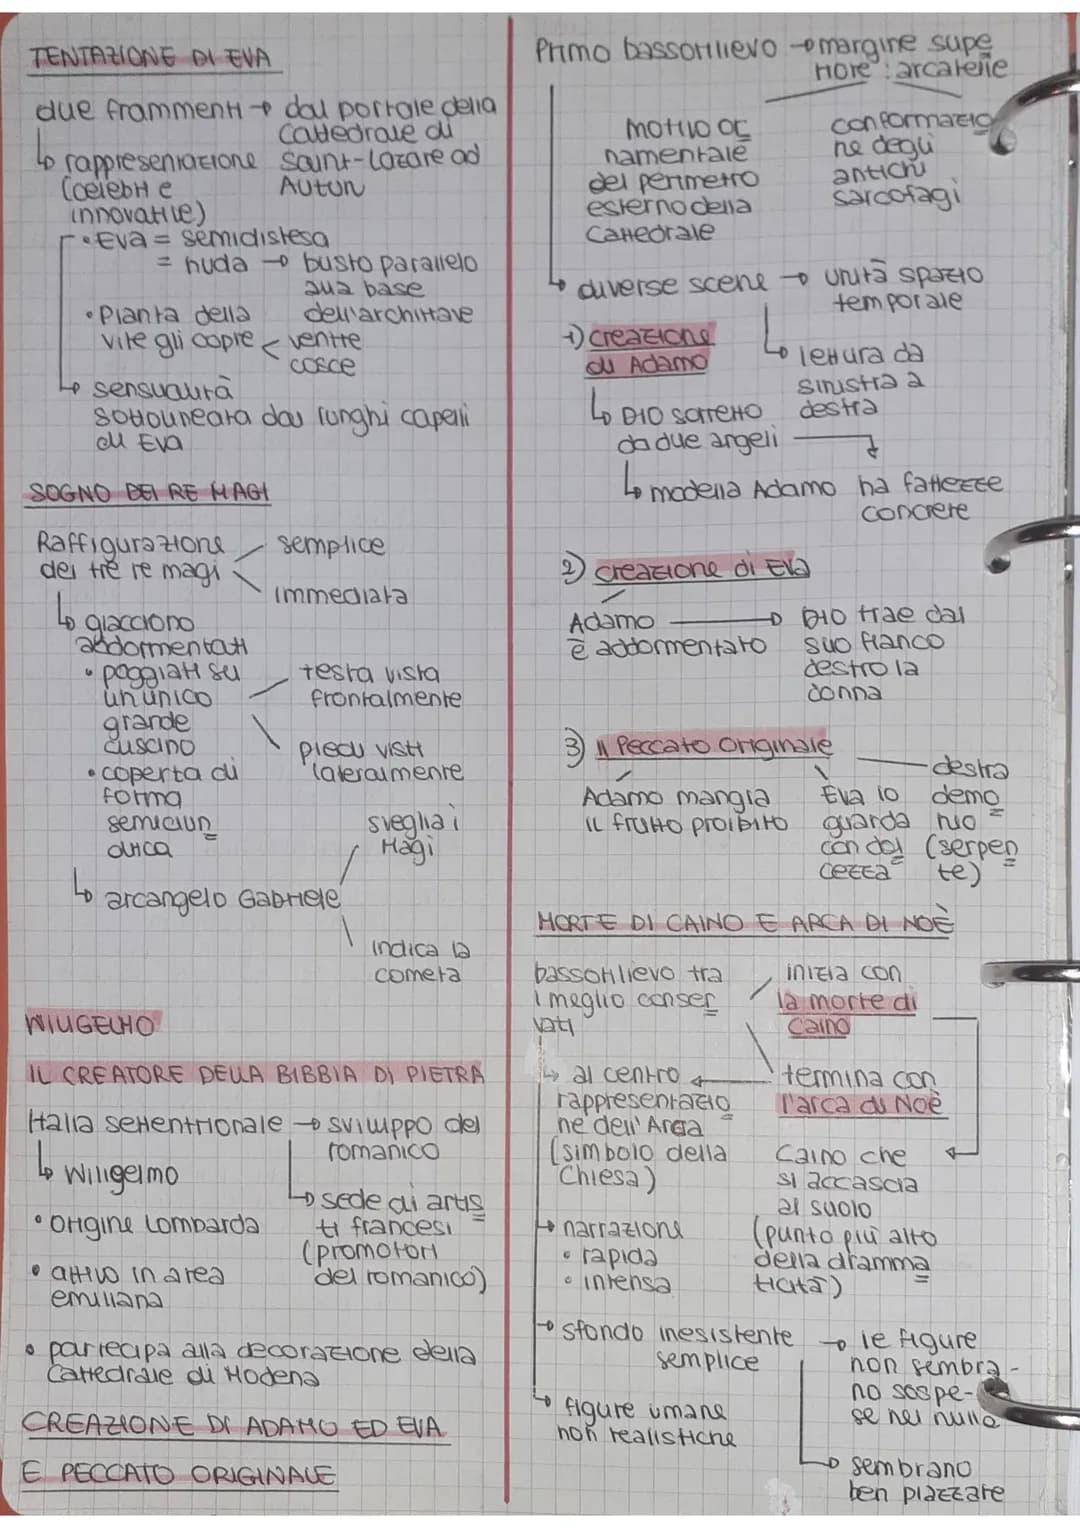 TENTAZIONE DI EVA
due frammenti → dal portale della
Cattedrale di
Saint-Lazare ad
Autun
↳ rappresentazione
(celebri e
innovative)
• Eva = semidistesa
= nuda → busto parallelo
alla base
dell'architrave
• Pianta della
vite gli copre < ventre
cosce
↳ sensualità
sottolineata dai lunghi capelli
di Eva
SOGNO DEI RE MAGI
Raffigurazione
dei tre re magi
semplice
immediata
↳ giacciono
addormentati
• poggiati su
un unico
grande
cuscino
testa vista
frontalmente
piedi visti
lateralmente
• coperta di
forma
semicilin
drica
↳ arcangelo Gabriele
sveglia i
Magi
indica la
cometa
WILIGELMO
IL CREATORE DELLA BIBBIA DI PIETRA
Italia settentrionale → sviluppo del
romanico
↳ Wiligelmo
↳ sede di artis
ti francesi
(promotori
del romanico)
• origine Lombarda
• attivo in area
emiliana
• partecipa alla decorazione della
Cattedrale di Modena
CREAZIONE DI ADAMO ED EVA
E PECCATO ORIGINALE
Primo bassorilievo → margine supe
riore : arcatelle
motivo or
namentale
del perimetro
esterno della
Cattedrale
conformazio
ne degli
antichi
sarcofagi
↳ diverse scene → unità spazio
temporale
↳ lettura da
sinistra a
destra
1) creazione
di Adamo
↳ DIO sorretto
da due angeli
↳ modella Adamo
ha fattezze
concrete
2) creazione di Eva
Adamo → DIO trae dal
è addormentato
suo fianco
destro la
donna
3) Il Peccato Originale
Adamo mangia
il frutto proibito
Eva lo
guarda
con dol
cezza
destra
demo
nio
(serpen
te)
MORTE DI CAINO E ARCA DI NOÈ
bassorilievo tra
i meglio conser
vati
inizia con
la morte di
Caino
termina con
l'arca di Noè
↳ al centro
rappresentazio
ne dell'Arca
(simbolo della
Chiesa)
Caino che
si accascia
al suolo
(punto più alto
della dramma
ticità)
→ narrazione
• rapida
• intensa
→ sfondo inesistente
semplice
→ le figure
non sembra-
no sospe-
se nel nulla
↳ sembrano
ben piazzate
↳ figure umane
non realistiche